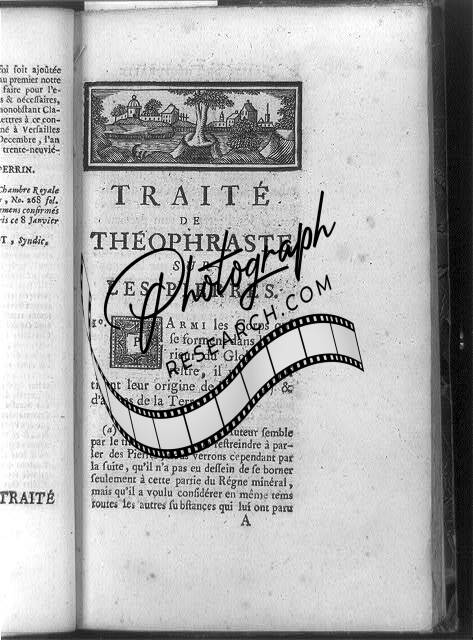 foi soit ajoûtée
au premier notre
faire pour l'e-
s & nécessaires,
nonobstant Cla-
ettres à ce con-
né à Versailles
Decembre, l'an
trente-neuvié-
PERRIN.
Chambre Royale
, No. 268 fol.
emens confirmés
ris ce 8 Janvier
T, Syndic,
TRAITÉ
TRAITÉ
DE
THÉOPHRASTE
SUR
LES PIERRES.
Photograph
RESEARCH.COM
PARMI les
se forment dans
leur origine de &
de la Terre
(a) Auteur semble
par le restreindre à par-
ler des Pierres verrons cependant par
la suite, qu'il n'a pas eu dessein de se borner
seulement à cette partie du Régne minéral,
mais qu'il a voulu considérer en même tems
toutes les autres substances qui lui ont paru
A